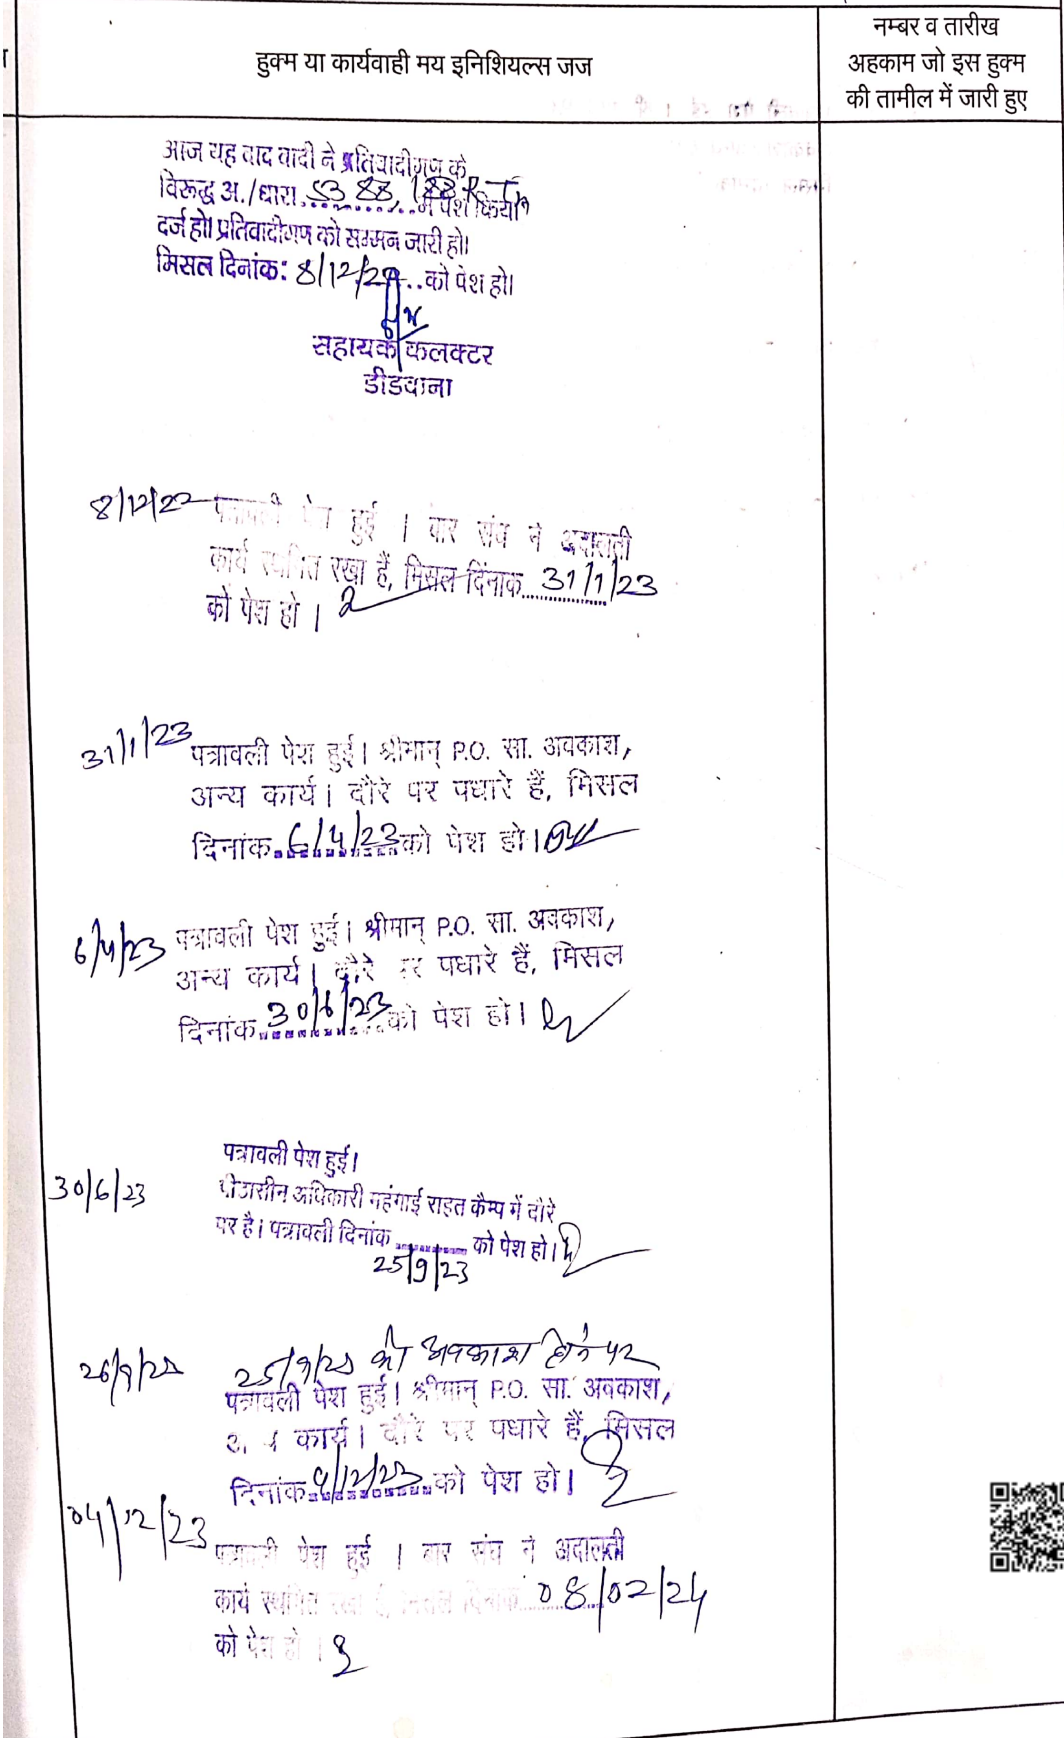 हुक्म या कार्यवाही मय इनिशियल्स जज
नम्बर व तारीख
अहकाम जो इस हुक्म
की तामील में जारी हुए
आज यह वाद वादी ने प्रतिवादीगण के
विरूद्ध अ./धारा. 53 88, 188 R.T. में पेश किया
दर्ज हो। प्रतिवादीगण को सम्मन जारी हो।
मिसल दिनांक: 8/12/22 को पेश हो।
सहायक कलक्टर
डीडवाना
8/12/22 पत्रावली पेश हुई । बार संघ ने अदालती
कार्य स्थगित रखा हैं, मिसल दिंनाक 31/1/23
को पेश हो ।
31/1/23 पत्रावली पेश हुई। श्रीमान् P.O. सा. अवकाश,
अन्य कार्य। दौरे पर पधारे हैं, मिसल
दिनांक 6/4/23 को पेश हो।
6/4/23 पत्रावली पेश हुई। श्रीमान् P.O. सा. अवकाश,
अन्य कार्य। दौरे पर पधारे हैं, मिसल
दिनांक 30/6/23 को पेश हो।
पत्रावली पेश हुई।
30/6/23 पीठासीन अधिकारी महंगाई राहत कैम्प में दौरे
पर है। पत्रावली दिनांक को पेश हो।
25/9/23
26/9/23 25/9/23 को अवकाश होने पर
पत्रावली पेश हुई। श्रीमान् P.O. सा. अवकाश,
अन्य कार्य। दौरे पर पधारे हैं, मिसल
दिनांक 4/12/23 को पेश हो।
04/12/23 पत्रावली पेश हुई । बार संघ ने अदालती
कार्य स्थगित रखा हैं, मिसल दिंनाक 08/02/24
को पेश हो ।